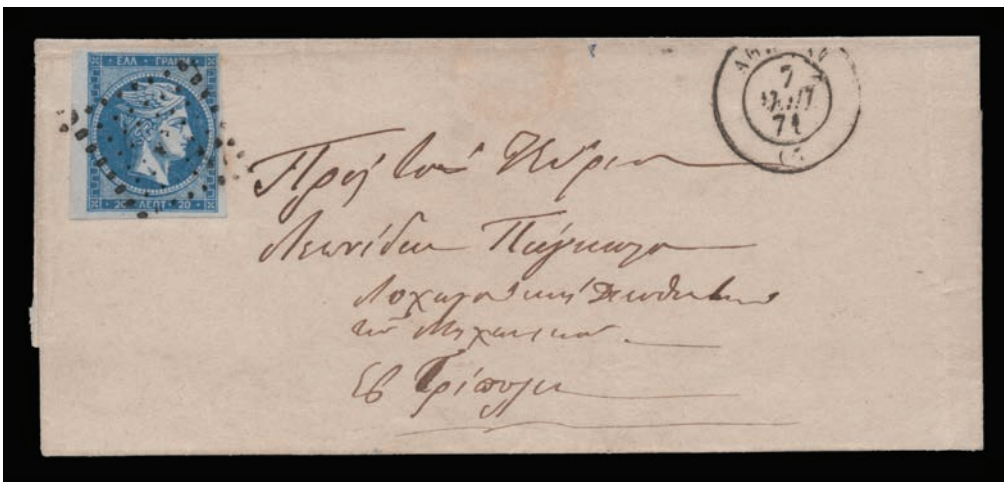 ΕΛΛ · ΓΡΑΜ
20 · ΛΕΠΤ · 20
7
71
Πρὸς τὸν Κύριον
Λεωνίδαν
Λοχαγὸν καὶ Διευθυντὴν
τοῦ Μηχανικοῦ
Εἰς Τρίπολιν